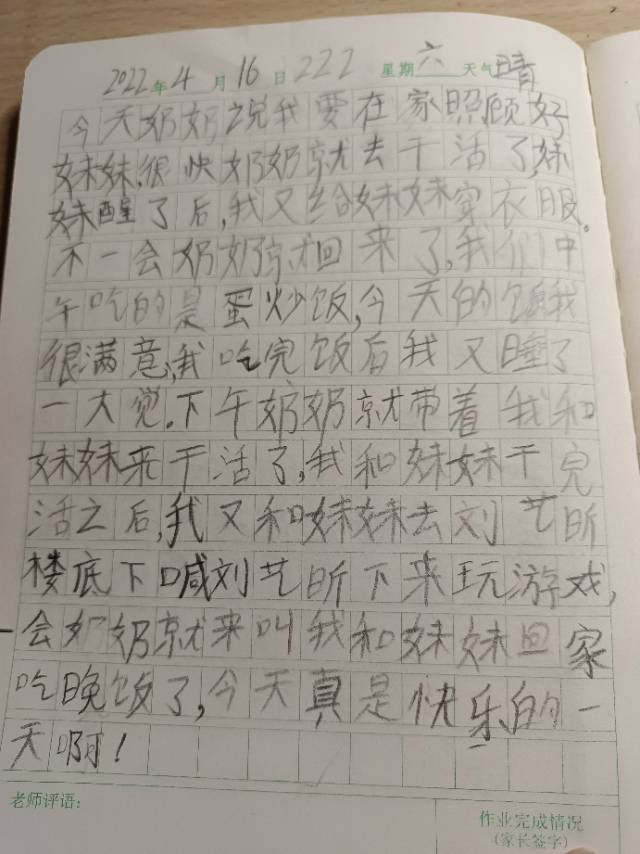 2022年4月16日 222 星期六 天气晴
今天奶奶说我要在家照顾好
妹妹,很快奶奶就去干活了,妹
妹醒了后,我又给妹妹穿衣服。
不一会奶奶就回来了,我们中
午吃的是蛋炒饭,今天的饭我
很满意,我吃完饭后我又睡了
一大觉。下午奶奶就带着我和
妹妹来干活了,我和妹妹干完
活之后,我又和妹妹去刘艺昕
楼底下喊刘艺昕下来玩游戏,
会奶奶就来叫我和妹妹回家
吃晚饭了,今天真是快乐的一
天啊!
老师评语:
作业完成情况
(家长签字)